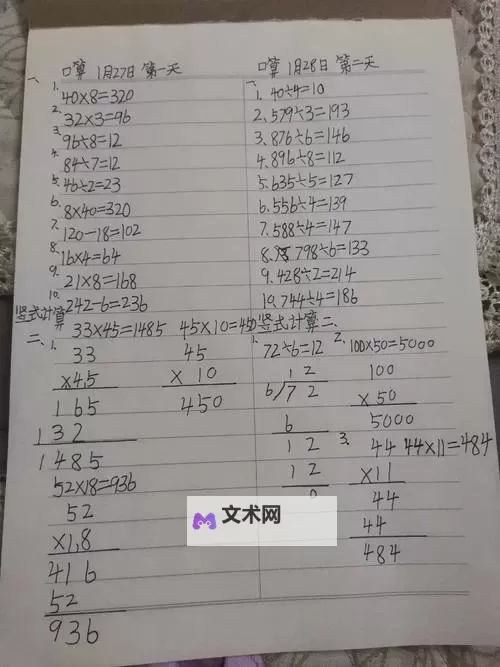 口算 1月27日 第一天
一、
1. 40×8=320
2. 32×3=96
3. 96÷8=12
4. 84÷7=12
5. 46÷2=23
6. 8×40=320
7. 120-18=102
8. 16×4=64
9. 21×8=168
10. 242-6=236
竖式计算
二、
1. 33×45=1485 45×10=450
33
×45
165
132
1485
45
×10
450
52×18=936
52
×1,8
416
52
936
口算 1月28日 第二天
一、
1. 40÷4=10
2. 579÷3=193
3. 876÷6=146
4. 896÷8=112
5. 635÷5=127
6. 556÷4=139
7. 588÷4=147
8. 798÷6=133
9. 428÷2=214
10. 744÷4=186
竖式计算二、
1. 72÷6=12
12
6/72
6
12
12
0
2. 100×50=5000
100
×50
5000
3. 44×11=484
44
×11
44
44
484
文术网